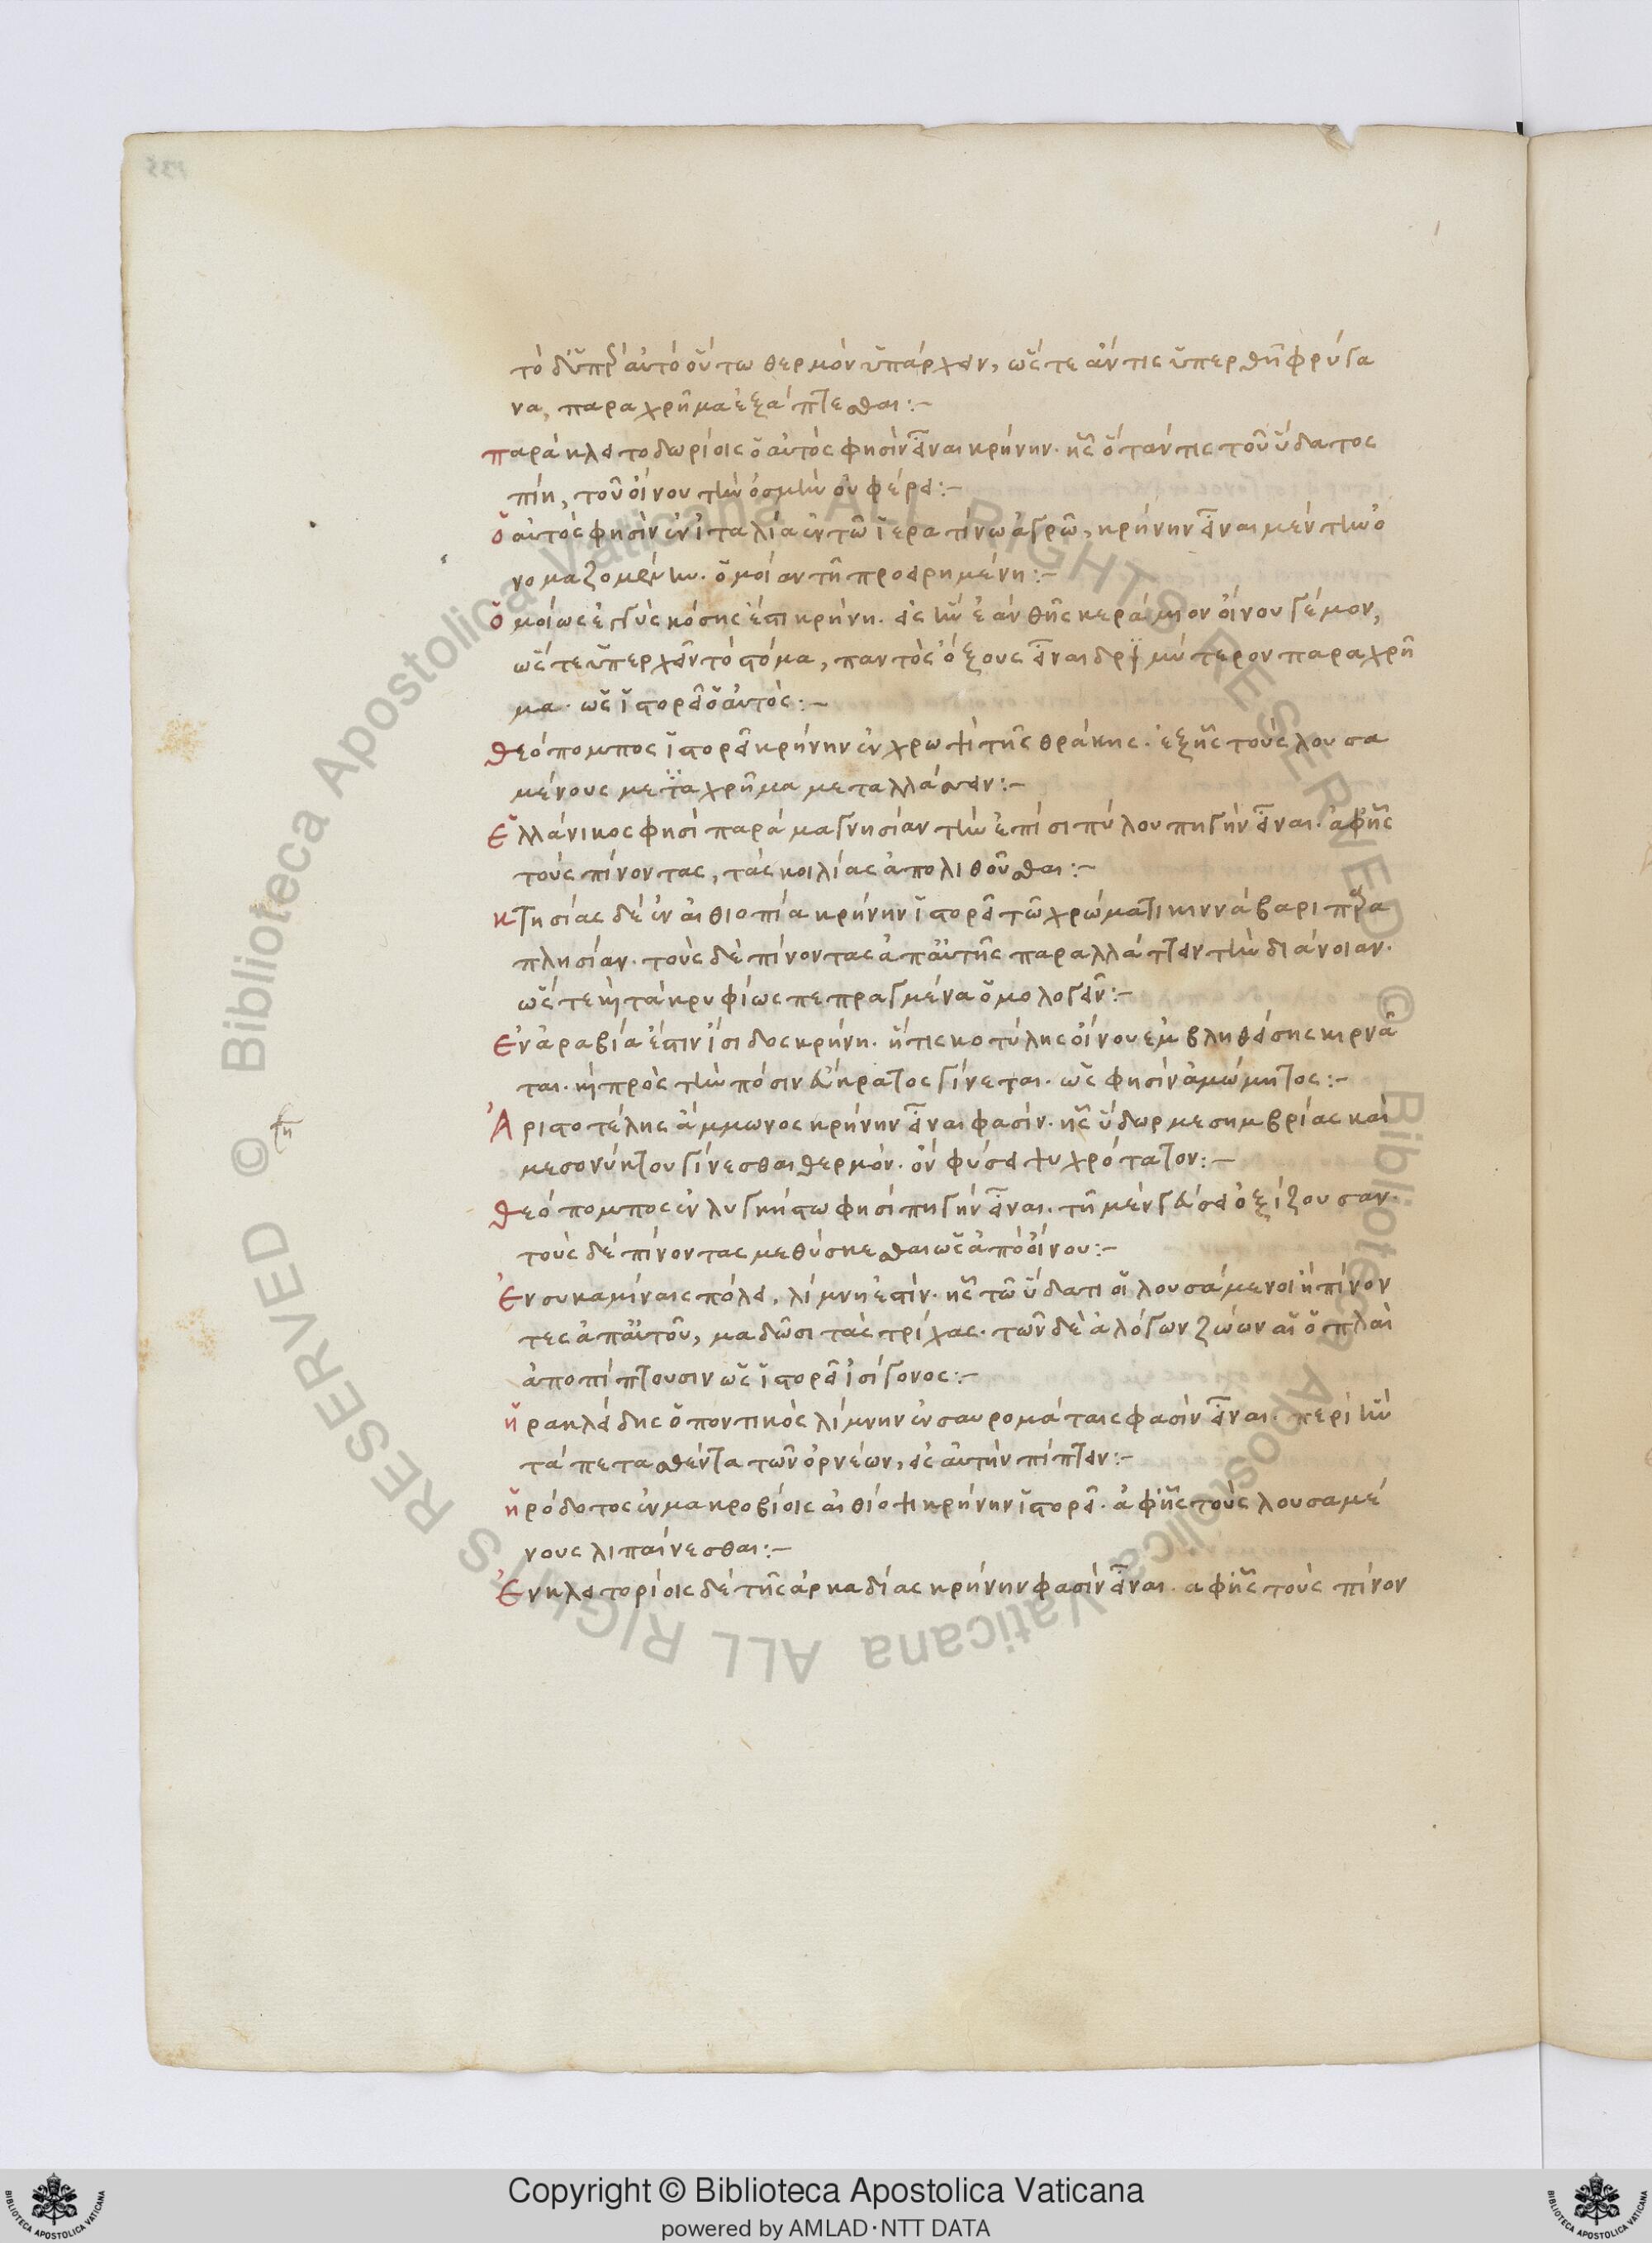 τὸ δ' ὑπὲρ αὐτὸ οὕτω θερμὸν ὑπάρχειν, ὥστε ἄν τις ὑπερθῆ φρύγα
να, παραχρῆμα ἐξάπτεσθαι:–
παρὰ κλειτοδωρίοις ὁ αὐτός φησὶν εἶναι κρήνην· ἧς ὅταν τις τοῦ ὕδατος
πίη, τοῦ οἴνου τὴν ὀσμὴν οὐ φέρει:–
ὁ αὐτός φησὶν ἐν ἰταλία ἐν τῶ ἱερατίνω ἀγρῶ, κρήνην εἶναι μέντην ὀ
νομαζομένην. ὁμοίαν τῆ προειρημένη:–
ὁμοίως ἐγγὺς κόσης ἐστι κρήνη. εἰς ἣν ἐὰν θῆς κεράμιον οἴνου γέμον,
ὥστε ὑπερχεῖν τὸ στόμα, παντὸς ὄξους εἶναι δριμύτερον παραχρῆ
μα· ὡς ἱστορεῖ ὁ αὐτὸς:–
θεόπομπος ἱστορεῖ κρήνην ἐν χρωψὶ τῆς θράκης. ἐξ ἧς τοὺς λουσα
μένους μεταχρῆμα μεταλλάσσειν:–
ἑλλάνικος φησὶ παρὰ μαγνησίαν τὴν ἐπὶ σιπύλου πηγὴν εἶναι. ἀφ ἧς
τοὺς πίνοντας, τὰς κοιλίας ἀπολιθοῦσθαι:–
κτησίας δὲ ἐν αἰθιοπία κρήνην ἱστορεῖ τῶ χρώματι κινναβαρι παρα
πλησίαν. τοὺς δὲ πίνοντας ἀπ αὐτῆς παραλλάττειν τὴν διάνοιαν.
ὥστε καὶ τὰ κρυφίως πεπραγμένα ὁμολογεῖν:–
ἐν ἀραβία ἐστιν ἴσιδος κρήνη. ἥτις κοτύλης οἴνου ἐμβληθείσης κιρνᾶ
ται. καὶ πρὸς τὴν πόσιν εὔκρατος γίνεται. ὥς φησὶν ἀμώμητος:–
Ἀριστοτέλης ἄμμωνος κρήνην εἶναι φασίν. ἧς ὕδωρ μεσημβρίας καὶ
μεσονύκτου γίνεσθαι θερμόν. ὂν φύσει ψυχρότατον:–
θεόπομπος ἐν λυγκήστω φησὶ πηγὴν εἶναι. τῆ μὲν γεύσει ὀξίζουσαν.
τοὺς δὲ πίνοντας μεθύσκεσθαι ὡς ἀπὸ οἴνου:–
ἐν συκαμίναις πόλει, λίμνη ἐστίν. ἧς τῶ ὕδατι οἱ λουσάμενοι ἢ πίνον
τες ἀπ αὐτοῦ, μαδῶσι τὰς τρίχας. τῶν δὲ ἀλόγων ζώων αἱ ὁπλαὶ
ἀποπίπτουσιν ὡς ἱστορεῖ ἰσίγονος:–
ἡρακλείδης ὁ ποντικὸς λίμνην ἐν σαυρομάταις φασὶν εἶναι. περὶ ἣν
τὰ πετασθέντα τῶν ὀρνέων, εἰς αὐτὴν πίπτειν:–
ἡρόδοτος ἐν μακροβίοις αἰθίοψι κρήνην ἱστορεῖ. ἀφ ἧς τοὺς λουσαμέ
νους λιπαίνεσθαι:–
ἐν κλειτορίοις δὲ τῆς ἀρκαδίας κρήνην φασὶν εἶναι. ἀφ ἧς τοὺς πίνον
© Biblioteca Apostolica Vaticana ALL RIGHTS RESERVED © Biblioteca Apostolica Vaticana ALL RIGHTS RESERVED
Copyright © Biblioteca Apostolica Vaticana
powered by AMLAD·NTT DATA
BIBLIOTECA APOSTOLICA VATICANA
BIBLIOTECA APOSTOLICA VATICANA